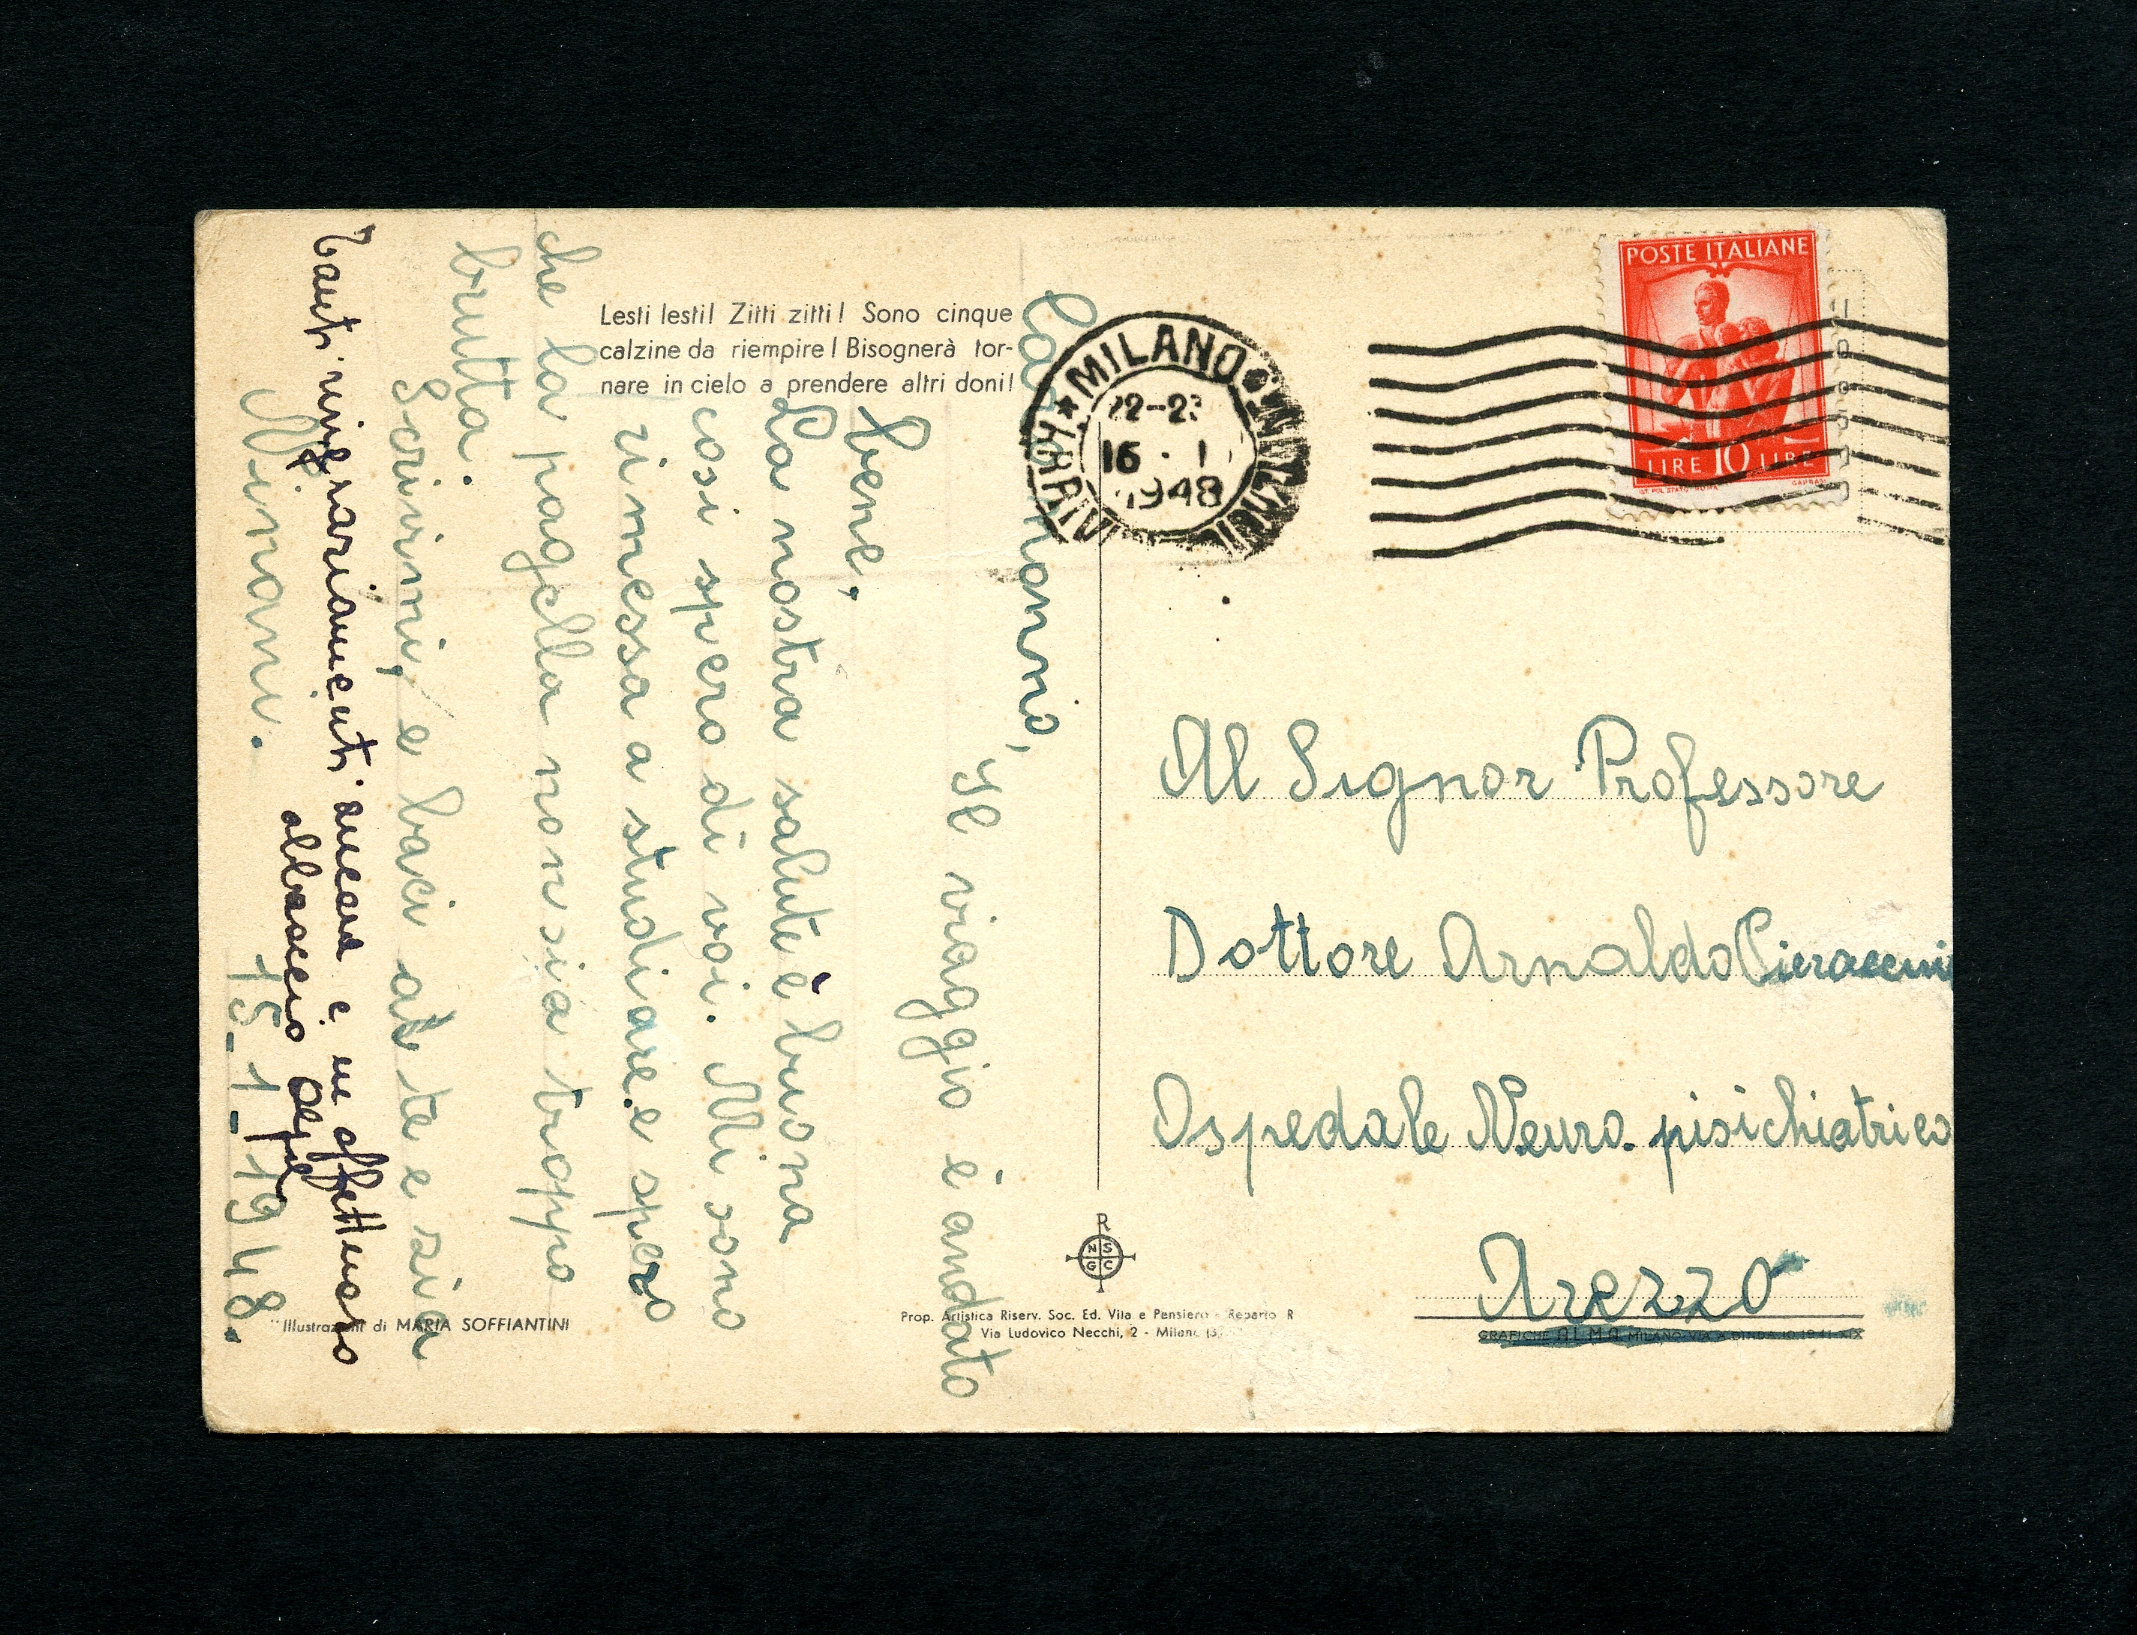 Lesti lesti! Zitti zitti! Sono cinque
calzine da riempire! Bisognerà tor-
nare in cielo a prendere altri doni!
Caro nonno,
Il viaggio è andato
bene,
La nostra salute è buona
così spero di voi. Mi sono
rimessa a studiare e spero
che la pagella non sia troppo
brutta.
Scrivimi, e baci a te e zia
Tanti ringraziamenti ancora e un affettuoso
abbraccio
Ninani.
15-1-1948.
MILANO
22-2
16 . 1
1948
POSTE ITALIANE
LIRE 10 LIRE
IST. POL. STATO ROMA
Al Signor Professore
Dottore Arnaldo Pieraccini
Ospedale Neuro. pisichiatrico
Arezzo
R
N S
G C
Illustrazioni di MARIA SOFFIANTINI
Prop. Artistica Riserv. Soc. Ed. Vita e Pensiero - Reparto R
Via Ludovico Necchi, 2 - Milano
GRAFICHE ALMA MILANO